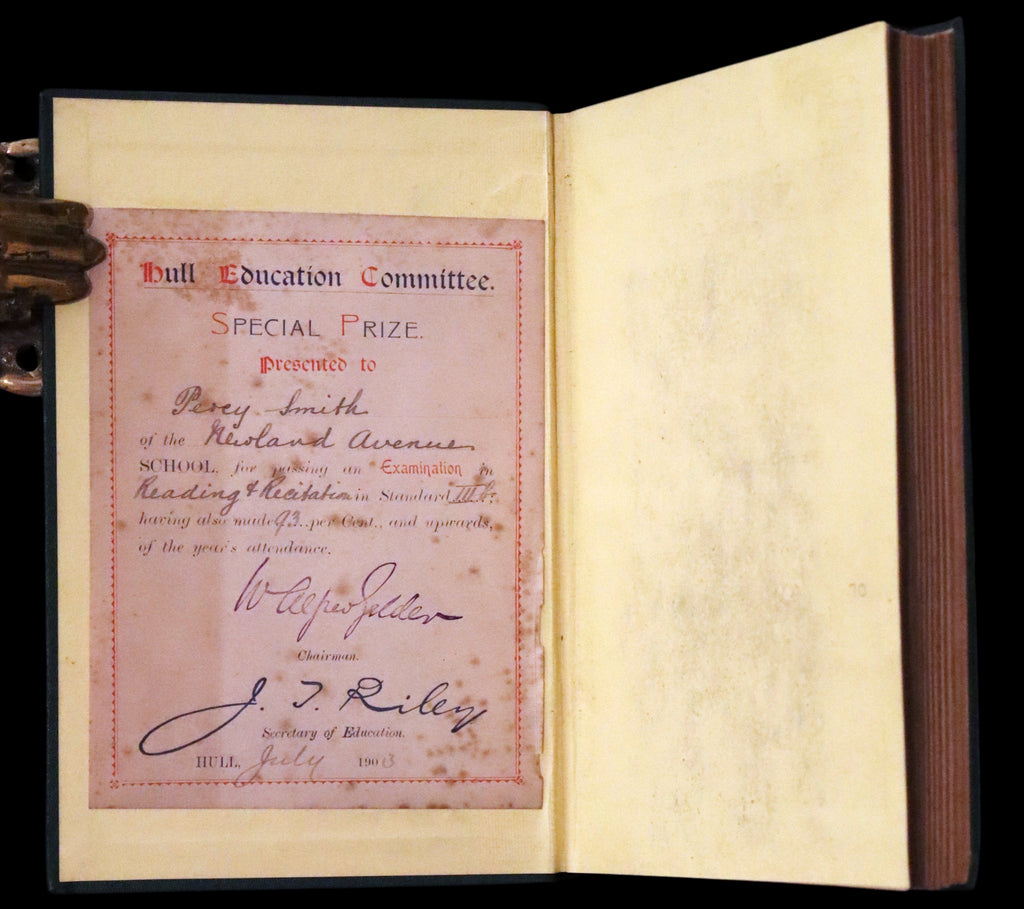 Hull Education Committee.
SPECIAL PRIZE.
Presented to
Percy Smith
of the Newland Avenue
SCHOOL, for passing an Examination in
Reading & Recitation in Standard III b.
having also made 93 per Cent., and upwards,
of the year's attendance.
W Alfred Gelder
Chairman.
J. T. Riley
Secretary of Education.
HULL, July 1903